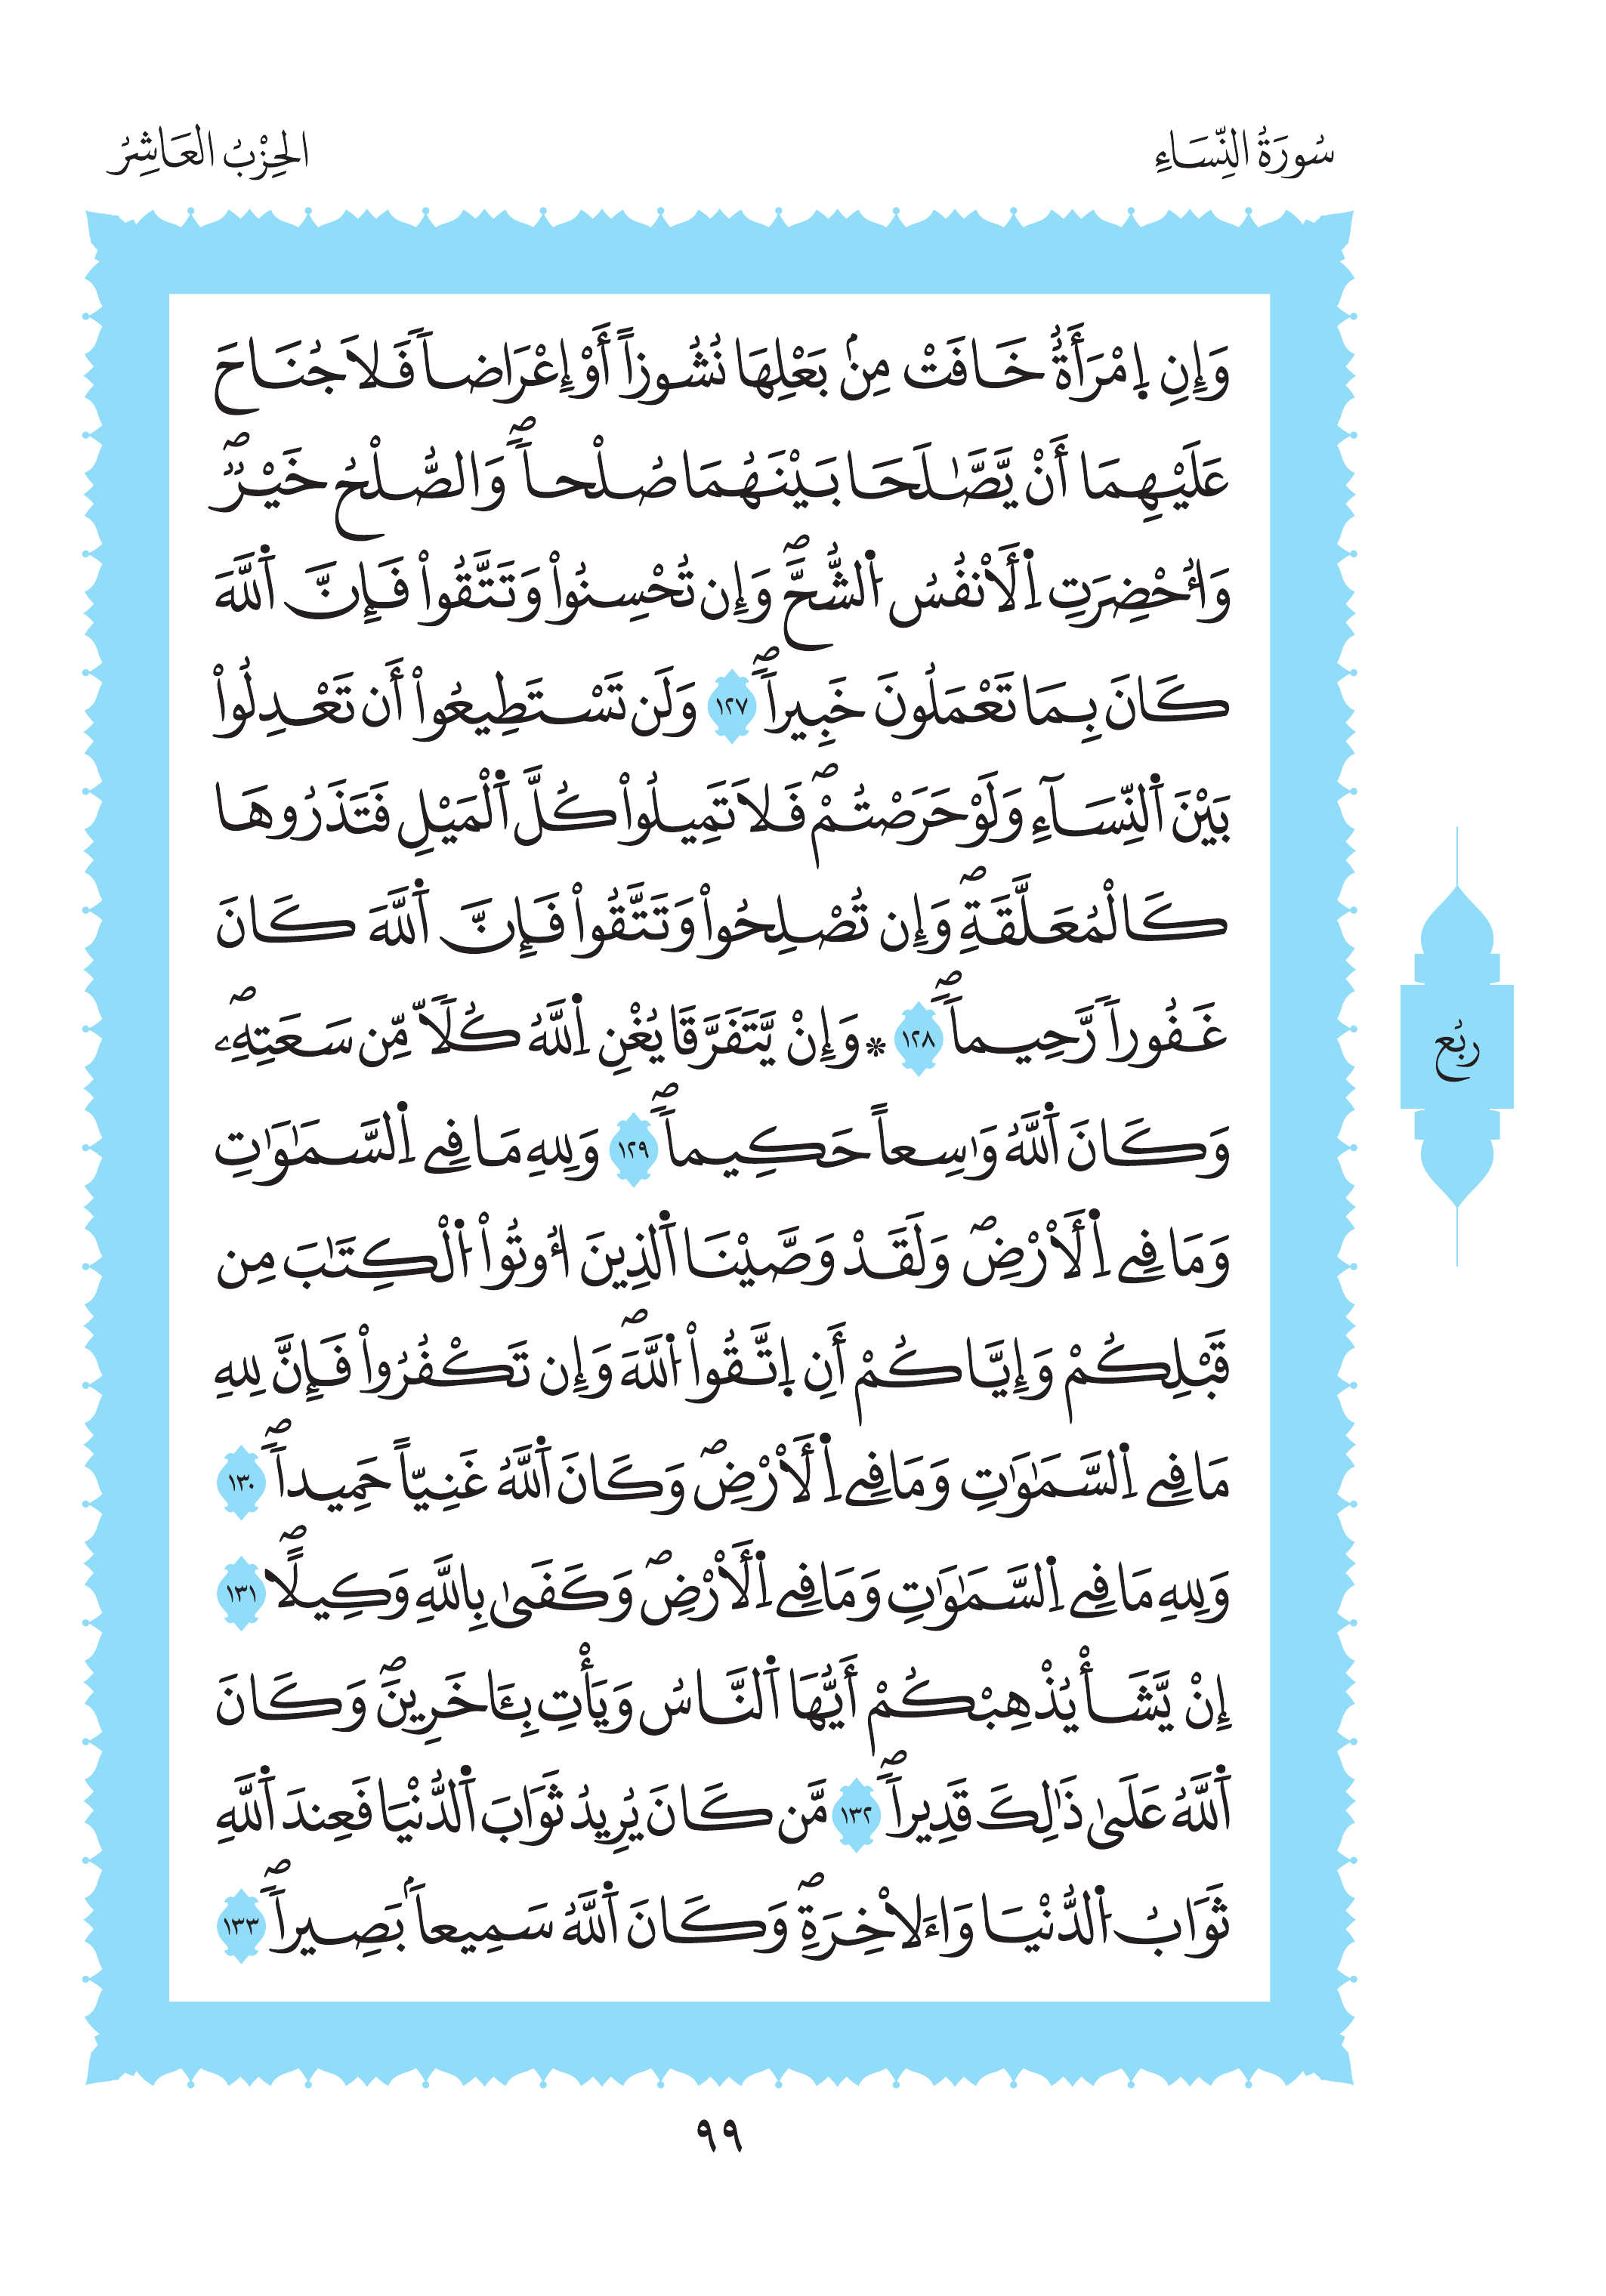 سُورَةُ النِّسَاءِ
الحِزْبُ العَاشِرُ
وَإِنِ اِ۪مْرَأَةٌ خَافَتْ مِنۢ بَعْلِهَا نُشُوزاً أَوْ إِعْرَاضاً فَلَا جُنَاحَ
عَلَيْهِمَا أَنْ يَّصَّٰلَحَا بَيْنَهُمَا صُلْحاًۖ وَالصُّلْحُ خَيْرٌۖ
وَأُحْضِرَتِ اِ۬لَانفُسُ اُ۬لشُّحَّۖ وَإِن تُحْسِنُواْ وَتَتَّقُواْ فَإِنَّ اَ۬للَّهَ
كَانَ بِمَا تَعْمَلُونَ خَبِيراًۖ ١٢٧ وَلَن تَسْتَطِيعُواْ أَن تَعْدِلُواْ
بَيْنَ اَ۬لنِّسَآءِ وَلَوْ حَرَصْتُمْۖ فَلَا تَمِيلُواْ كُلَّ اَ۬لْمَيْلِ فَتَذَرُوهَا
كَالْمُعَلَّقَةِۖ وَإِن تُصْلِحُواْ وَتَتَّقُواْ فَإِنَّ اَ۬للَّهَ كَانَ
غَفُوراً رَّحِيماًۖ ١٢٨ * وَإِنْ يَّتَفَرَّقَا يُغْنِ اِ۬للَّهُ كُلّاً مِّن سَعَتِهِۦۖ
وَكَانَ اَ۬للَّهُ وَٰسِعاً حَكِيماًۖ ١٢٩ وَلِلهِ مَا فِے اِ۬لسَّمَٰوَٰتِ
وَمَا فِے اِ۬لَارْضِۖ وَلَقَدْ وَصَّيْنَا اَ۬لذِينَ أُوتُواْ اُ۬لْكِتَٰبَ مِن
قَبْلِكُمْ وَإِيَّاكُمْ أَنِ اِ۪تَّقُواْ اُ۬للَّهَۖ وَإِن تَكْفُرُواْ فَإِنَّ لِلهِ
مَا فِے اِ۬لسَّمَٰوَٰتِ وَمَا فِے اِ۬لَارْضِۖ وَكَانَ اَ۬للَّهُ غَنِيّاً حَمِيداًۖ ١٣٠
وَلِلهِ مَا فِے اِ۬لسَّمَٰوَٰتِ وَمَا فِے اِ۬لَارْضِۖ وَكَفَىٰ بِاللَّهِ وَكِيلًاۖ ١٣١
إِنْ يَّشَأْ يُذْهِبْكُمْ أَيُّهَا اَ۬لنَّاسُ وَيَأْتِ بِـَٔاخَرِينَۖ وَكَانَ
اَ۬للَّهُ عَلَىٰ ذَٰلِكَ قَدِيراًۖ ١٣٢ مَّن كَانَ يُرِيدُ ثَوَابَ اَ۬لدُّنْيَا فَعِندَ اَ۬للَّهِ
ثَوَابُ اُ۬لدُّنْيَا وَاءَلَاخِرَةِۖ وَكَانَ اَ۬للَّهُ سَمِيعاَۢ بَصِيراًۖ ١٣٣
ربُع
٩٩